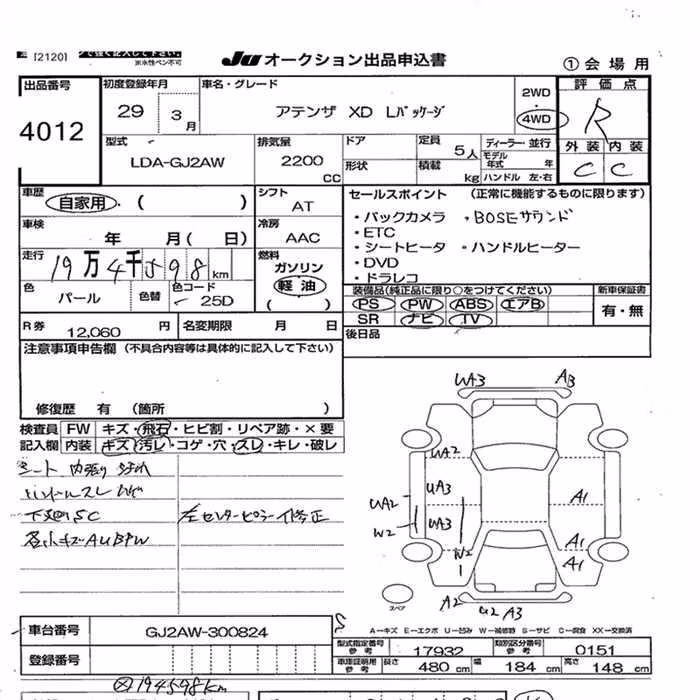 [2120] で強く記入して下さい。
※水性ペン不可
JU オークション出品申込書
① 会場用
出品番号 4012
初度登録年月 29 3月
車名・グレード アテンザ XD Lパッケージ
2WD・4WD
評価点 R
外装 内装
C C
型式 LDA-GJ2AW
排気量 2200 CC
ドア 形状
定員 5人
積載 kg
ディーラー・並行
モデル年式 年
ハンドル 左・右
車歴 自家用・( )
シフト AT
車検 年 月( 日)
冷房 AAC
走行 19万4千598km
燃料 ガソリン 軽油 ( )
色 パール 色替 色コード 25D
R券 12,060円
名変期限 月 日
セールスポイント (正常に機能するものに限ります)
・バックカメラ ・BOSEサウンド
・ETC
・シートヒータ ・ハンドルヒーター
・DVD
・ドラレコ
装備品(純正品に限り○をつけてください) 新車保証書
PS PW ABS エアB 有・無
SR ナビ TV
後日品
注意事項申告欄 (不具合内容等は具体的に記入して下さい)
修復歴 有 (箇所 )
検査員 FW キズ・飛石・ヒビ割・リペア跡・×要
記入欄 内装 キズ・汚レ・コゲ・穴・スレ・キレ・破レ
シート 内張り
ハンドルスレ
下廻りSC 左センターピラー修正
各小キズAUBPW
WA3 A3
UA2
UA3
UA2
W2
UA3
W2
A1
A1
A1
A2 U2 A3
スペア
A−キズ E−エクボ U−凹み W−補修跡 S−サビ C−腐食 XX−交換済
車台番号 GJ2AW-300824
登録番号
型式指定番号 参考 17932 類別区分番号 参考 0151
車庫証明用 参考 長さ 480cm 幅 184cm 高さ 148cm
194598km